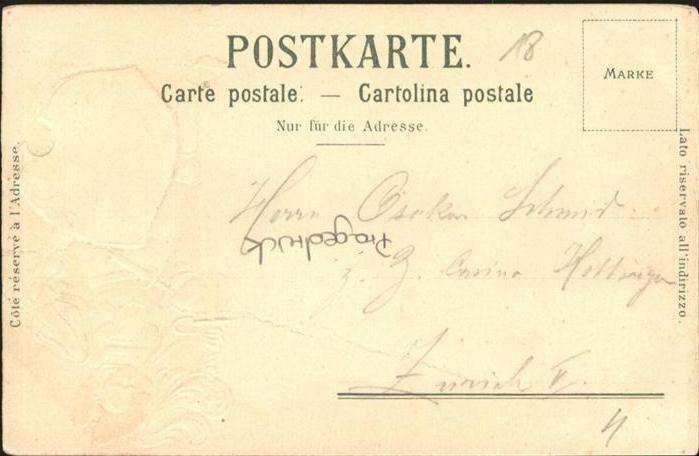 POSTKARTE.
18
MARKE
Carte postale. — Cartolina postale
Nur für die Adresse.
Côté réservé à l'Adresse.
Lato riservato all'indirizzo.
Herrn Oskar Schmid
Prägedruck
z. Z. Casino Hottingen
Zürich V.
4